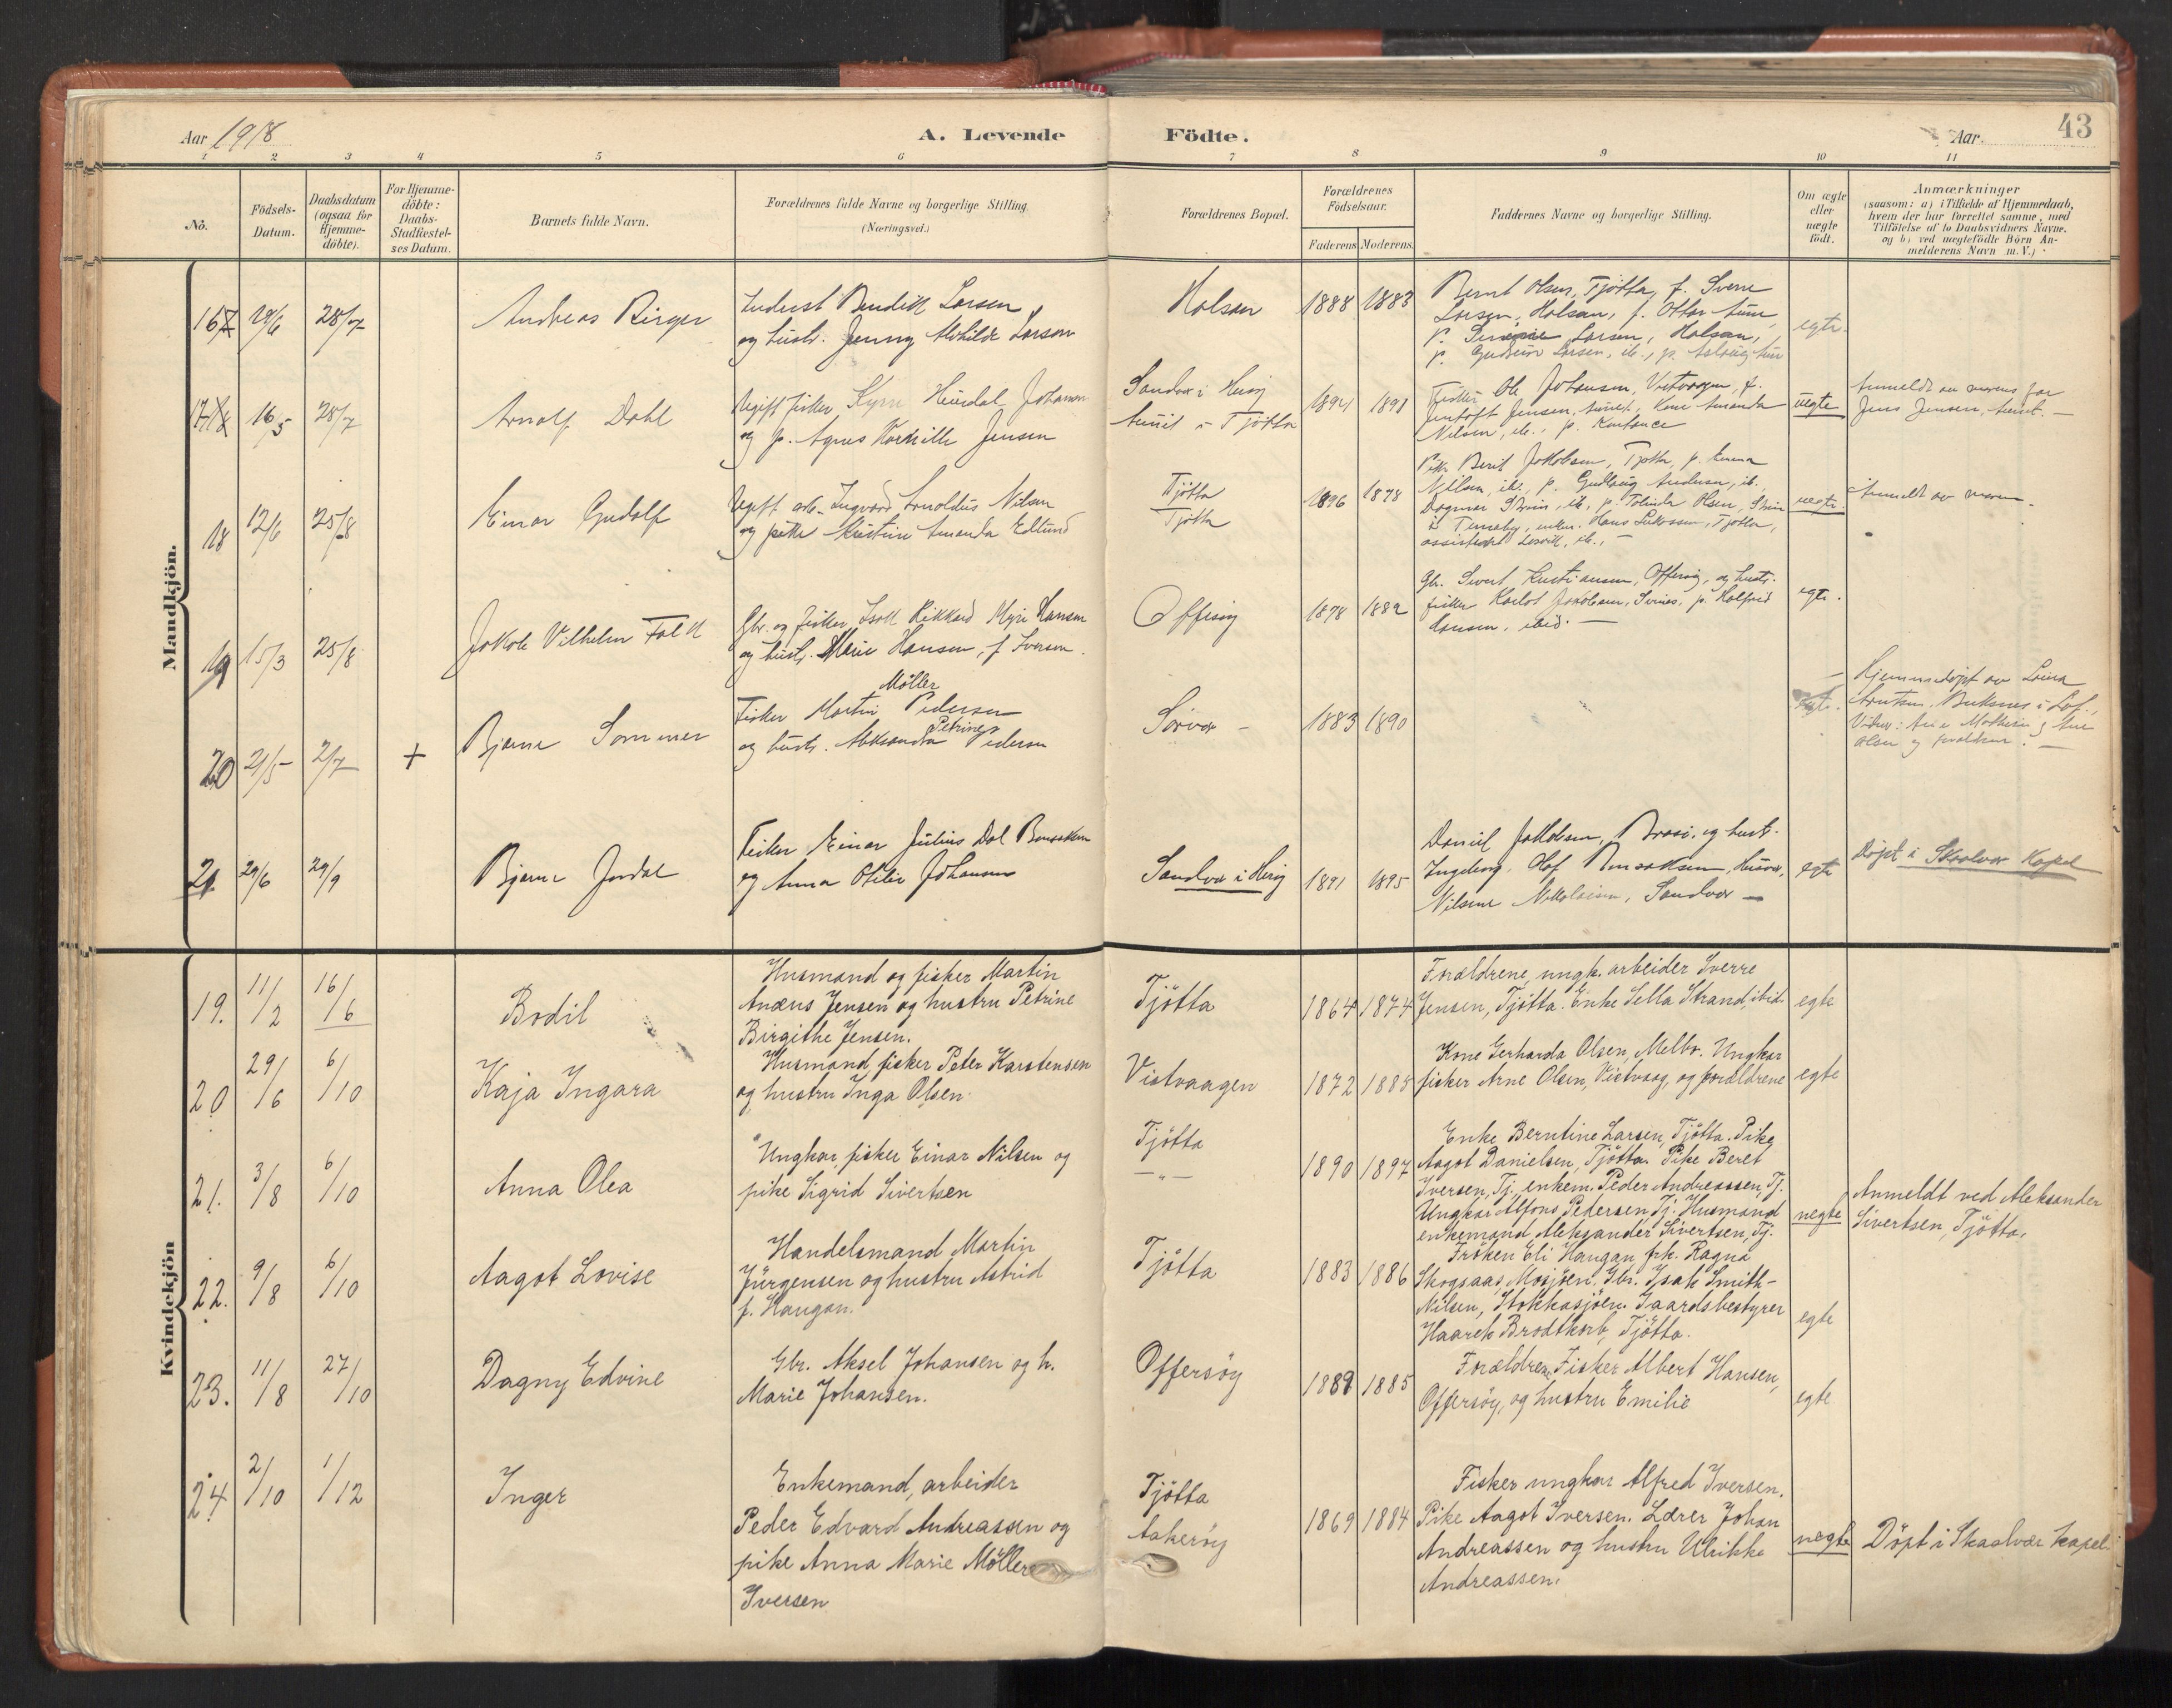 Aar 1918
A. Levende Födte.
Aar. 43
1 2 3 4 5 6 7 8 9 10 11
No.
Födsels-
Datum.
Daabsdatum
(ogsaa for
Hjemme-
döbte).
For Hjemme-
döbte:
Daabs-
Stadfæstel-
ses Datum.
Barnets fulde Navn.
Forældrenes fulde Navne og borgerlige Stilling
(Næringsvei.)
Forældrenes Bopæl.
Forældrenes
Födselsaar.
Faderens Moderens
Faddernes Navne og borgerlige Stilling.
Om ægte
eller
uægte
födt.
Anmærkninger
(saasom: a) i Tilfælde af Hjemmedaab,
hvem der har forrettet samme, med
Tilföielse af to Daabsvidners Navne.
og b) ved uægtefödte Börn An-
melderens Navn m.V.)
Mandkjön.
16 28/7
Andreas Birger
Bendik Larsen
og hustr. Jenny Mathilde Larsen
Holsen
1888 1883
Bernt Olsen, Tjötta, f. Sverre
Larsen, Holsen, f. Ottar
Larsen, Holsen,
p. Gudrun Larsen, ib., p.
egte
17 16/5 28/7
Arnolf Dahl
Ugift fisker Heindal Johansen
og p. Agnes Jensen
Sandvær i Herøy
i Tjötta
1894 1898
Fisker Ole Johansen, Vistvaagen, f.
Jentoft Jensen, Kone Amanda
Nilsen, ib., p.
uegte
Anmeldt av morens far
Jens Jensen,
18 12/6 25/8
Einar Gudolf
Ugift arb. Ingvard Arnoldus Nilsen
og pike Kristine Amanda Edlund
Tjötta
Tjötta
1896 1898
Pike Berit Jakobsen, Tjötta, p.
Nilsen, ib., p. Gudlaug Andersen, ib.
Dagmar ib., p. Olsen,
Hans Tjötta,
assistent
uegte
Anmeldt av moren
19 15/3 25/8
Jakob Vilhelm Falk
Gbr. og fisker Isak Rikkard Myri Hansen
og hustr. Marie Hansen, f. Iversen.
Offersöy
1878 1882
Gbr. Sivert Kristiansen, Offersöy, og hustr.
fisker Karlot Jakobsen, p.
Hansen, ibid.
egte.
20 21/5 2/7 +
Bjarne Sommer
Möller
Fisker Martin Pedersen
Petrine
og hustr. Aleksandra Pedersen
Sörvær
1883 1890
egte.
Hjemmedöpt av Lovisa
Buksnes i Lof.,
Vidner: Mathisen og
Olsen og forældrene.
21. 29/6 29/9
Bjarne Jordal
Fisker Einar Julius Dal Benoaksen
og Anna Otilie Johansen
Sandvær i Herøy
1891 1895
Daniel Jakobsen, Brasöy, og hust.
Ingeborg. Olaf Husvær,
Nilsine Nikolaisen, Sandvær
egte
Döpt i Skaalvær Kapel
Kvindekjön
19. 11/2 16/6
Bodil
Husmand og fisker Martin
Anæus Jensen og hustru Petrine
Birgithe Jensen.
Tjötta
1864 1874
Forældrene, ungk. arbeider Sverre
Jensen, Tjötta. Enke Sella Strand, ibid.
egte
20 29/6 6/10
Kaja Ingara
Husmand, fisker Peter Karstensen
og hustru Inga Olsen.
Vistvaagen
1872 1885
Kone Gerharda Olsen, Melbo. Ungkar
fisker Arne Olsen, Vistvaag, og forældrene
egte
21. 3/8 6/10
Anna Olea
Ungkar, fisker Einar Nilsen og
pike Sigrid Sivertsen
Tjötta
—"—
1890 1897
Enke Berntine Larsen, Tjötta. Pike
Aagot Danielsen, Tjötta. Pike Beret
Iversen, Tj., enkem. Peder Andreassen, Tj.
Ungkar Alfons Pedersen, Tj. Husmand
enkemand Aleksander Sivertsen, Tj.
uegte
Anmeldt ved Aleksander
Sivertsen, Tjötta.
22. 9/8 6/10
Aagot Lovise
Handelsmand Martin
Jürgensen og hustru Astrid
f. Haugan.
Tjötta
1883 1886
Fröken Eli Haugan, frk. Ragna
Skogsaas, Mosjöen. Gbr. Isak Smith-
Nilsen, Stokkasjöen. Gaardsbestyrer
Haarek Brodtkorb, Tjötta.
egte
23. 11/8 27/10
Dagny Edvine
Gbr. Aksel Johansen og h.
Marie Johansen.
Offersöy
1889 1885
Forældrene, Fisker Albert Hansen,
Offersöy, og hustru Emilie
egte
24 2/10 1/12
Inger
Enkemand, arbeider
Peder Edvard Andreassen og
pike Anna Marie Möller
Iversen
Tjötta
Aakeröy
1869 1884
Fisker ungkar Alfred Iversen.
Pike Aagot Iversen. Lærer Johan
Andreassen og hustru Ulrikke
Andreassen.
uegte
Döpt i Skaalvær kapel.